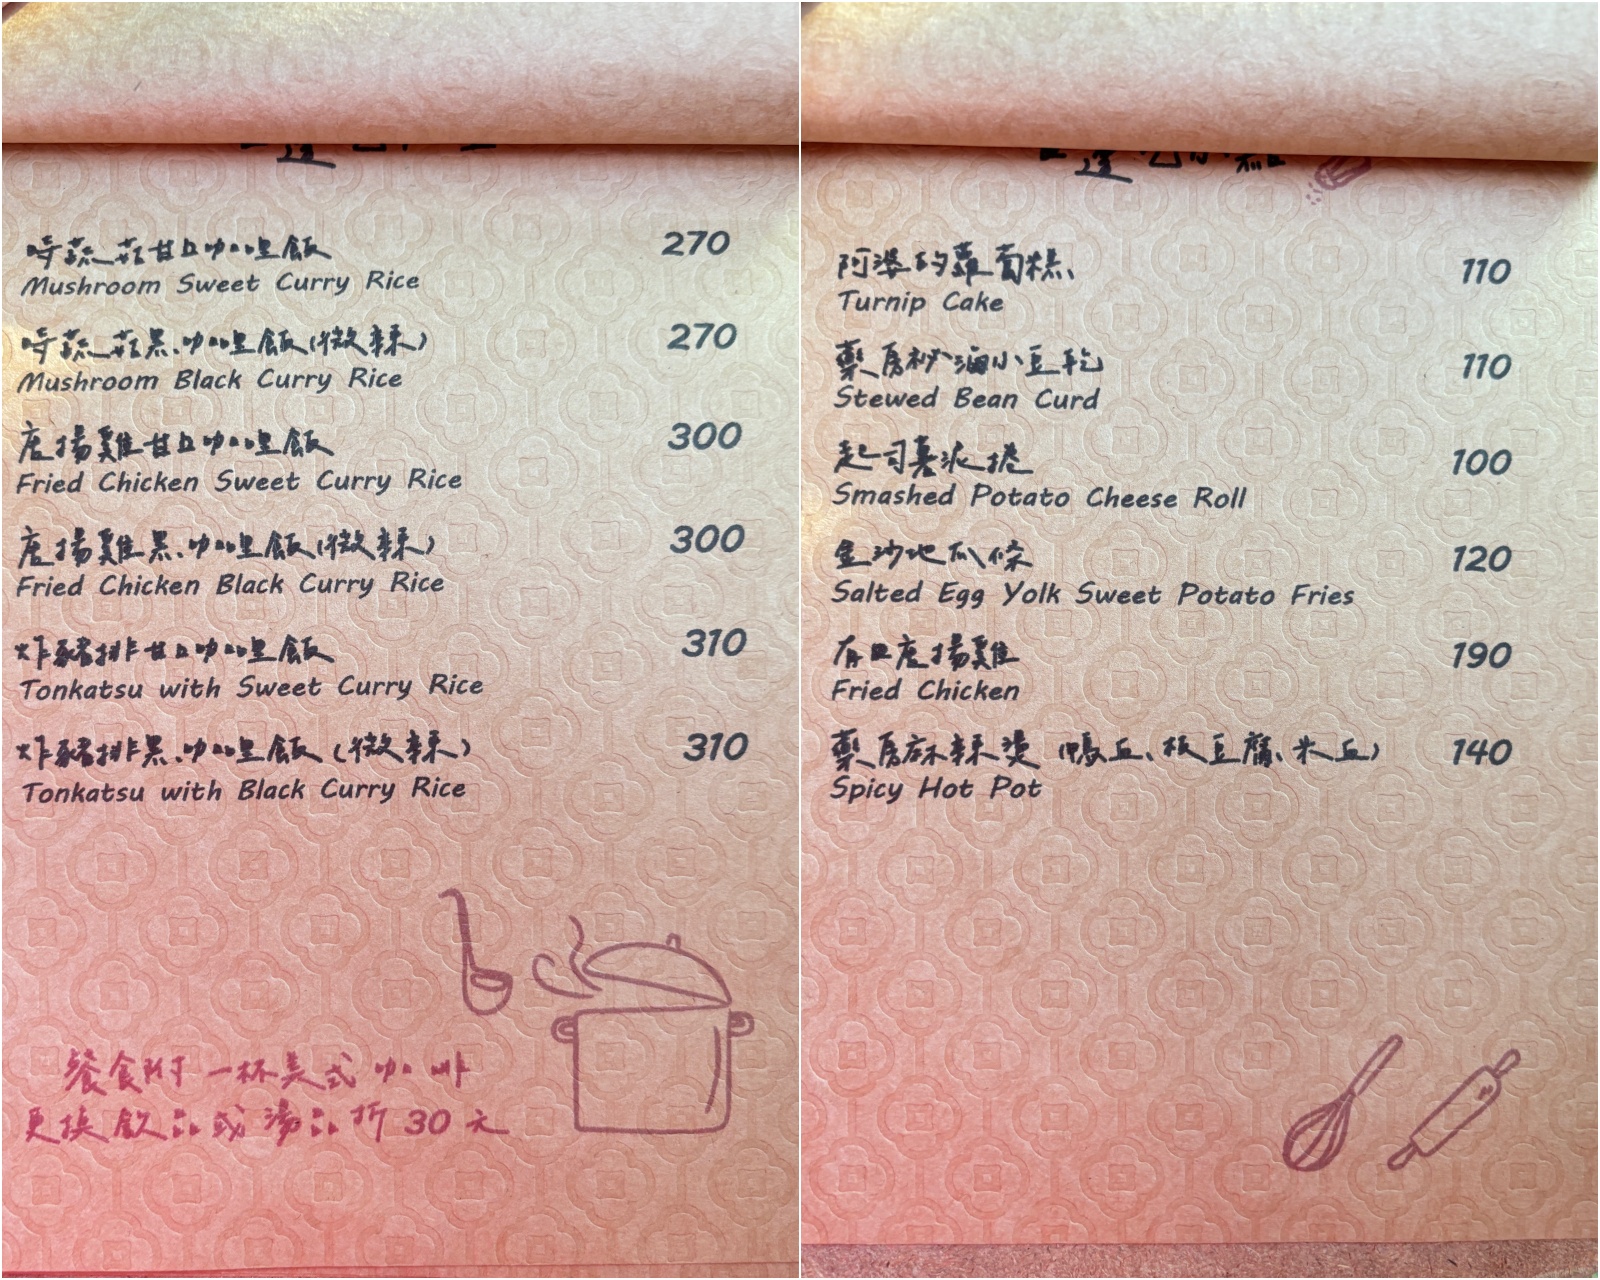 時蔬菇甘口咖哩飯 270
Mushroom Sweet Curry Rice
時蔬菇黑咖哩飯(微辣) 270
Mushroom Black Curry Rice
唐揚雞甘口咖哩飯 300
Fried Chicken Sweet Curry Rice
唐揚雞黑咖哩飯(微辣) 300
Fried Chicken Black Curry Rice
炸豬排甘口咖哩飯 310
Tonkatsu with Sweet Curry Rice
炸豬排黑咖哩飯(微辣) 310
Tonkatsu with Black Curry Rice
餐食附一杯美式咖啡
更換飲品或湯品折30元
阿婆的蘿蔔糕 110
Turnip Cake
藥房秘滷小豆乾 110
Stewed Bean Curd
起司薯泥捲 100
Smashed Potato Cheese Roll
金沙地瓜條 120
Salted Egg Yolk Sweet Potato Fries
存口唐揚雞 190
Fried Chicken
藥房麻辣燙(鴨血、板豆腐、米血) 140
Spicy Hot Pot